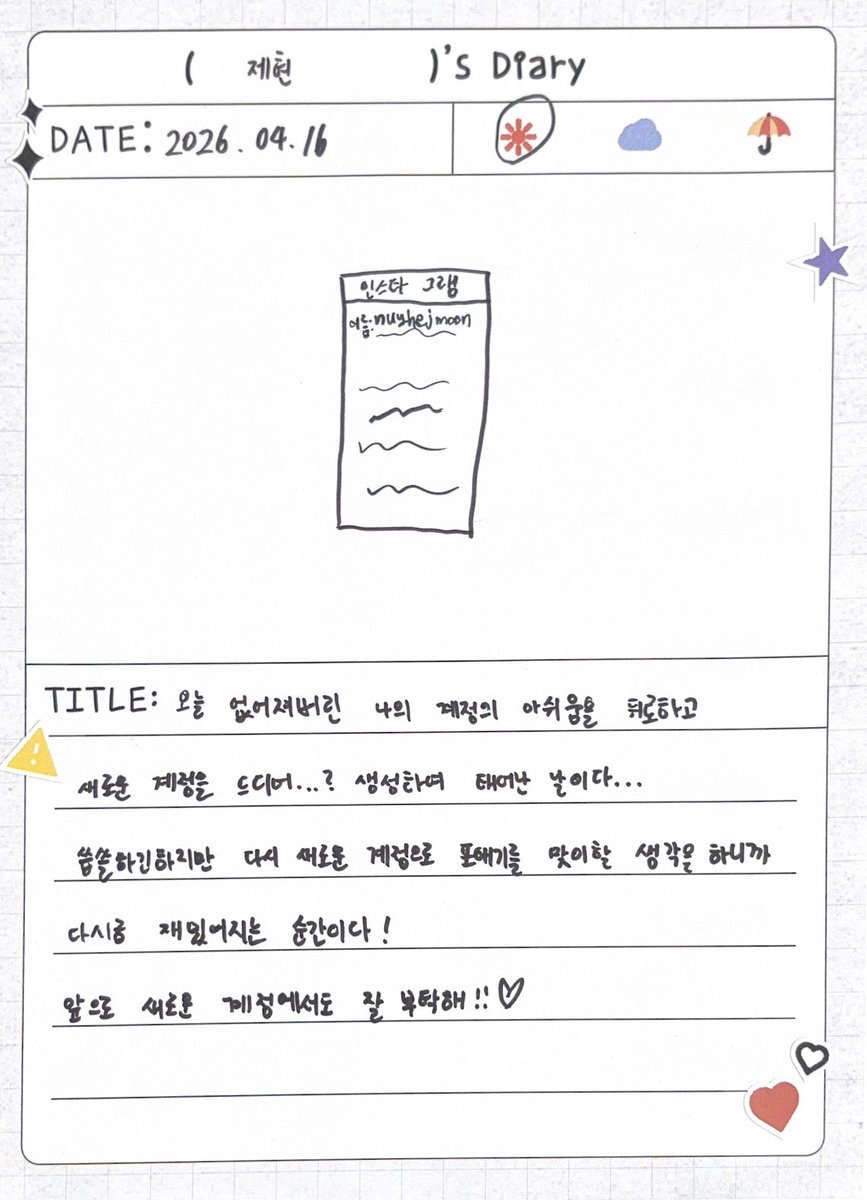 ( 제현 )'s Diary
DATE: 2026.04.16
인스타그램
이름:nuyhejmoon
TITLE: 오늘 없어져버린 나의 계정의 아쉬움을 뒤로하고
새로운 계정을 드디어...? 생성하여 태어난 날이다...
씁쓸하긴하지만 다시 새로운 계정으로 포애기를 맞이할 생각을 하니까
다시금 재밌어지는 순간이다!
앞으로 새로운 계정에서도 잘 부탁해!!♡